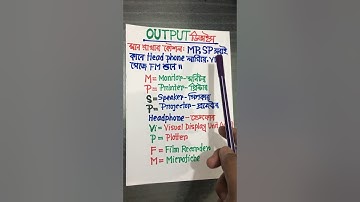 OUTPUT ডিভাইস
মনে রাখার কৌশল: MP, SP
কানে Head phone লাগিয়ে, Vi
FM শুনে ॥
M = Monitor - মনিটর
P = Printer - প্রিন্টার
S = Speaker - স্পিকার
P = Projector - প্রজেক্টর
Headphone - হেডফোন
Vi = Visual Display Unit
P = Plotter
F = Film Recorder
M = Microfiche